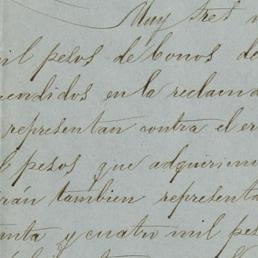 Muy tres
mil pesos de bonos de
endidos en la reclama
representan contra el er
l pesos que adquirim
rán tambien representa
nta y cuatro mil pes